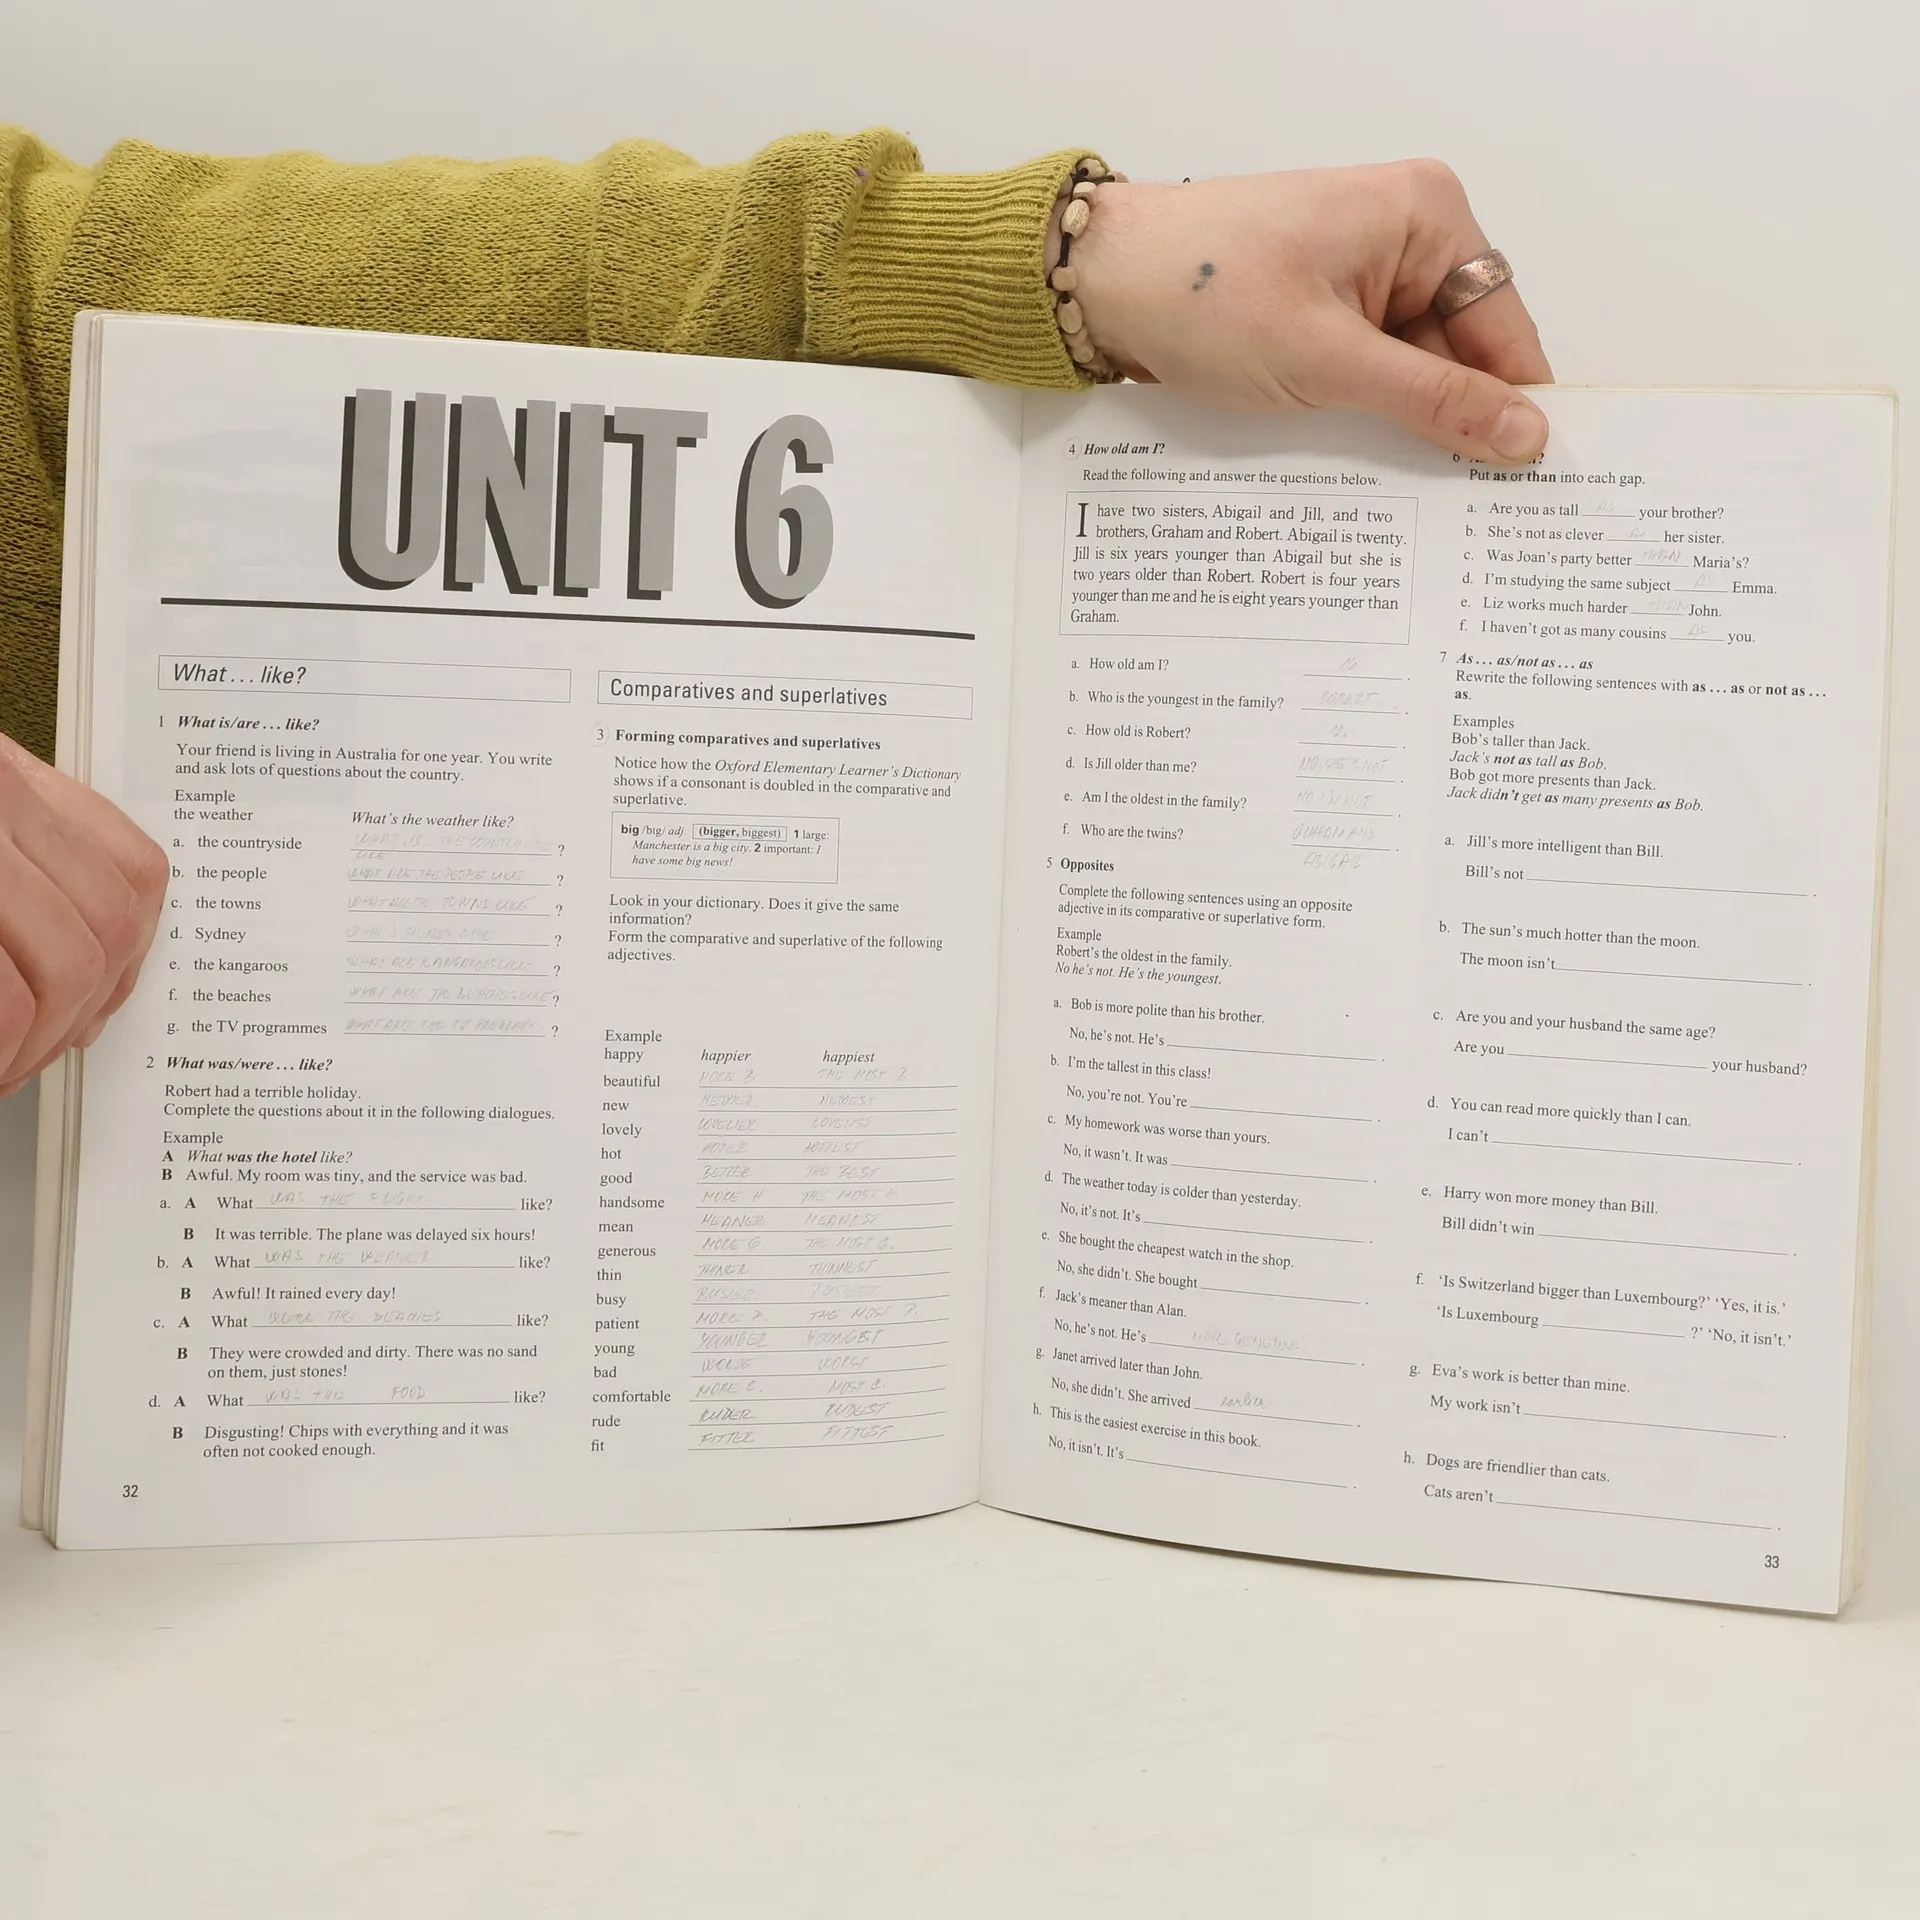 UNIT 6
What ... like?
1 What is/are ... like?
Your friend is living in Australia for one year. You write
and ask lots of questions about the country.
Example
the weather What's the weather like?
a. the countryside ?
LIKE
b. the people WHAT ARE THE PEOPLE LIKE ?
c. the towns WHAT ARE THE TOWNS LIKE ?
d. Sydney ?
e. the kangaroos ?
f. the beaches WHAT ARE THE BEACHES LIKE ?
g. the TV programmes WHAT ARE THE TV ?
2 What was/were ... like?
Robert had a terrible holiday.
Complete the questions about it in the following dialogues.
Example
A What was the hotel like?
B Awful. My room was tiny, and the service was bad.
a. A What WAS THE FLIGHT like?
B It was terrible. The plane was delayed six hours!
b. A What WAS THE like?
B Awful! It rained every day!
c. A What WERE THE like?
B They were crowded and dirty. There was no sand
on them, just stones!
d. A What WAS THE FOOD like?
B Disgusting! Chips with everything and it was
often not cooked enough.
32
Comparatives and superlatives
3 Forming comparatives and superlatives
Notice how the Oxford Elementary Learner's Dictionary
shows if a consonant is doubled in the comparative and
superlative.
big /bɪg/ adj. (bigger, biggest) 1 large:
Manchester is a big city. 2 important: I
have some big news!
Look in your dictionary. Does it give the same
information?
Form the comparative and superlative of the following
adjectives.
Example
happy happier happiest
beautiful MORE B. THE MOST B.
new NEWER NEWEST
lovely LOVELIER
hot HOTTEST
good BETTER THE BEST
handsome MORE H. THE MOST H.
mean MEANER MEANEST
generous MORE G. THE MOST G.
thin THINNEST
busy BUSIER
patient MORE P. THE MOST P.
young YOUNGER YOUNGEST
bad WORSE WORST
comfortable MORE C. MOST C.
rude RUDER RUDEST
fit FITTER FITTEST
4 How old am I?
Read the following and answer the questions below.
I have two sisters, Abigail and Jill, and two
brothers, Graham and Robert. Abigail is twenty.
Jill is six years younger than Abigail but she is
two years older than Robert. Robert is four years
younger than me and he is eight years younger than
Graham.
a. How old am I? 16 .
b. Who is the youngest in the family? ROBERT .
c. How old is Robert? 12 .
d. Is Jill older than me? NO, SHE IS NOT .
e. Am I the oldest in the family? NO I'M NOT .
f. Who are the twins? .
ABIGAIL
5 Opposites
Complete the following sentences using an opposite
adjective in its comparative or superlative form.
Example
Robert's the oldest in the family.
No he's not. He's the youngest.
a. Bob is more polite than his brother.
No, he's not. He's .
b. I'm the tallest in this class!
No, you're not. You're .
c. My homework was worse than yours.
No, it wasn't. It was .
d. The weather today is colder than yesterday.
No, it's not. It's .
e. She bought the cheapest watch in the shop.
No, she didn't. She bought .
f. Jack's meaner than Alan.
No, he's not. He's MORE GENEROUS .
g. Janet arrived later than John.
No, she didn't. She arrived earlier .
h. This is the easiest exercise in this book.
No, it isn't. It's .
6 ?
Put as or than into each gap.
a. Are you as tall AS your brother?
b. She's not as clever AS her sister.
c. Was Joan's party better THAN Maria's?
d. I'm studying the same subject AS Emma.
e. Liz works much harder THAN John.
f. I haven't got as many cousins AS you.
7 As ... as/not as ... as
Rewrite the following sentences with as ... as or not as ...
as.
Examples
Bob's taller than Jack.
Jack's not as tall as Bob.
Bob got more presents than Jack.
Jack didn't get as many presents as Bob.
a. Jill's more intelligent than Bill.
Bill's not .
b. The sun's much hotter than the moon.
The moon isn't .
c. Are you and your husband the same age?
Are you your husband?
d. You can read more quickly than I can.
I can't .
e. Harry won more money than Bill.
Bill didn't win .
f. 'Is Switzerland bigger than Luxembourg?' 'Yes, it is.'
'Is Luxembourg ?' 'No, it isn't.'
g. Eva's work is better than mine.
My work isn't .
h. Dogs are friendlier than cats.
Cats aren't .
33